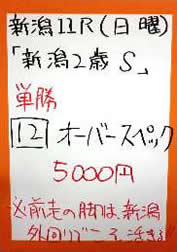 新潟11R(日曜)
「新潟2歳S」
単勝
12 オーバースペック
5000円
近前走の脚は、新潟
外回りでこそ活きる!!